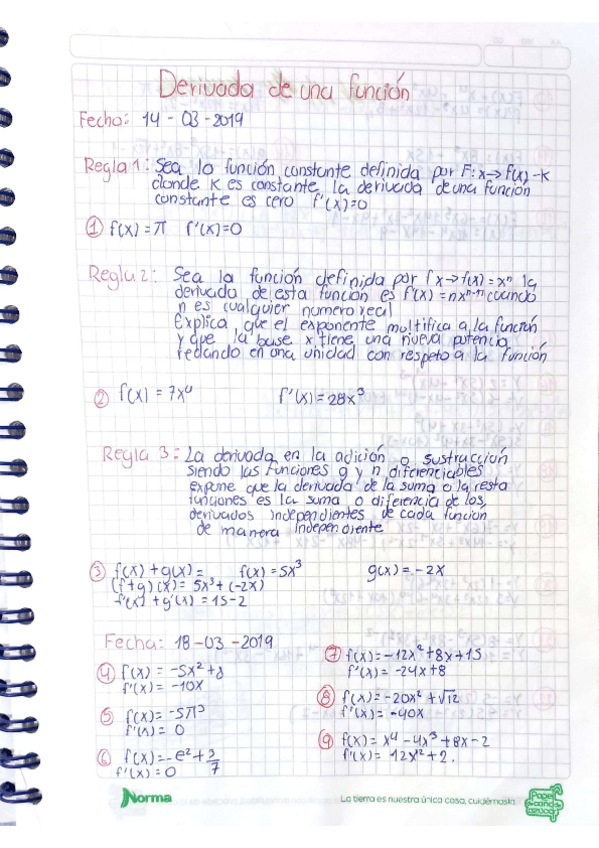 Derivada de una función
Fecha: 14 - 03 - 2019
Regla 1: Sea la función constante definida por F: x→f(x) - K
donde K es constante la derivada de una función
constante es cero f'(x)=0
① f(x) = π f'(x)=0
Regla 2: Sea la función definida por f x→f(x) = xⁿ la
derivada de esta función es f'(x) = nxⁿ⁻¹ cuando
n es cualquier numero real
Explica, que el exponente multifica a la función
y que la base x tiene una nueva potencia
redando en una unidad con respeto a la función
② f(x) = 7x⁴ f'(x) = 28x³
Regla 3: La derivada en la adición o sustracción
siendo las funciones g y n diferenciables
expone que la derivada de la suma o la resta
funciones es la suma o diferencia de los
derivados independientes de cada función
de manera independiente
③ f(x) + g(x) = f(x) = 5x³ g(x) = - 2x
(f+g)(x) = 5x³ + (-2x)
f'(x) + g'(x) = 15 - 2
Fecha: 18 - 03 - 2019
④ f(x) = -5x² + 8
f'(x) = -10x
⑤ f(x) = -5π³
f'(x) = 0
⑥ f(x) = - e² + 3/7
f'(x) = 0
⑦ f(x) = -12x² + 8x + 15
f'(x) = -24x + 8
⑧ f(x) = -20x² + √12
f'(x) = -40x
⑨ f(x) = x⁴ - 4x³ + 8x - 2
f'(x) = 12x² + 2.
Norma
La tierra es nuestra única casa, cuidémosla
Papel de caña de azúcar